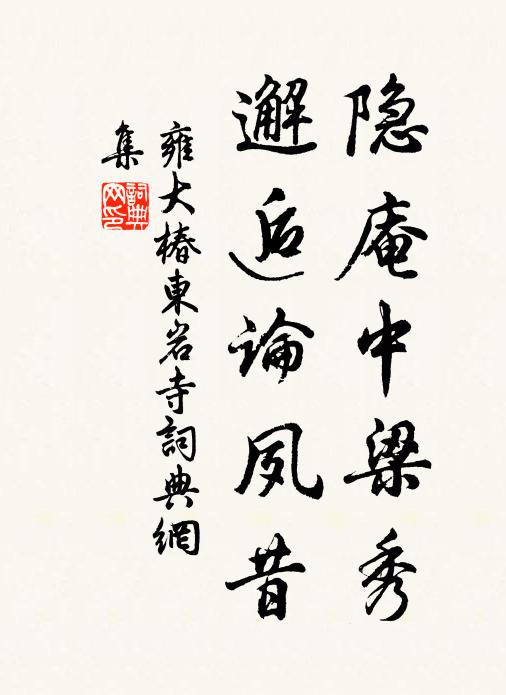 隐庵中梁秀
邂逅论夙昔
雍大椿東岩寺詞典網
集
詞典网印